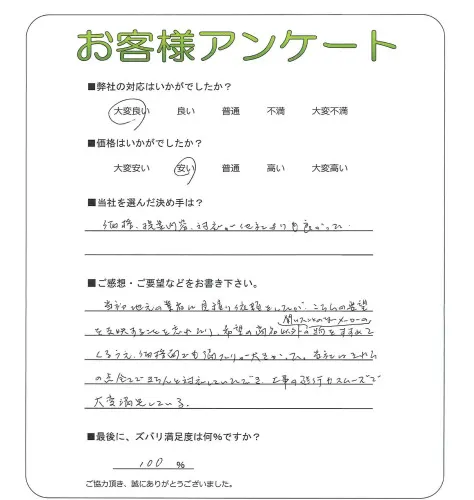 お客様アンケート
■弊社の対応はいかがでしたか？
大変良い 良い 普通 不満 大変不満
■価格はいかがでしたか？
大変安い 安い 普通 高い 大変高い
■当社を選んだ決め手は？
価格、提案内容、対応が他社よりも良かった.
■ご感想・ご要望などをお書き下さい。
地元の業者に見積り依頼をしたが、こちらの希望
聞いたことのないメーカーの
希望の商品以外の物をすすめて
価格面でも開きが大きかった。
の点全てできちんと対応していただき、工事の進行もスムーズで
大変満足している。
■最後に、ズバリ満足度は何%ですか？
100 %
ご協力頂き、誠にありがとうございました。